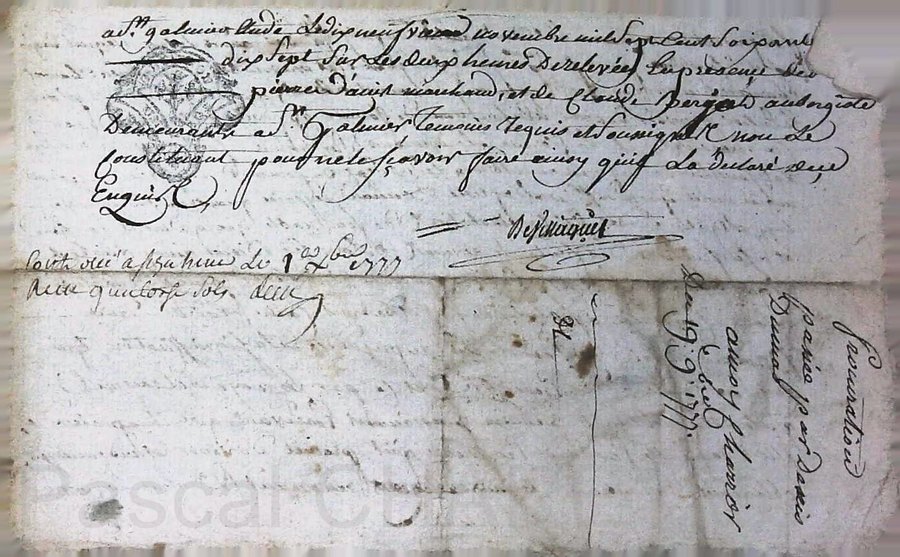 a St galmier Etude Le dix neufvieme novembre mil Sept Cent Soixante
dix Sept Sur Les deux heures De relevée, En presence de
pierre marchand, et de Claude aubergiste
Demeurants a St Galmier Temoins requis et Soussignés non Le
Constituant pour ne le sçavoir faire ainsy qu'il La déclaré de ce
Enquis
Controllé a St galmier Le 1er Xbre 1777
Reçu quatorze Sols
procuration
passée par Denis
Dumas
a mory Charrior
Du 19. 9bre 1777.
Pascal